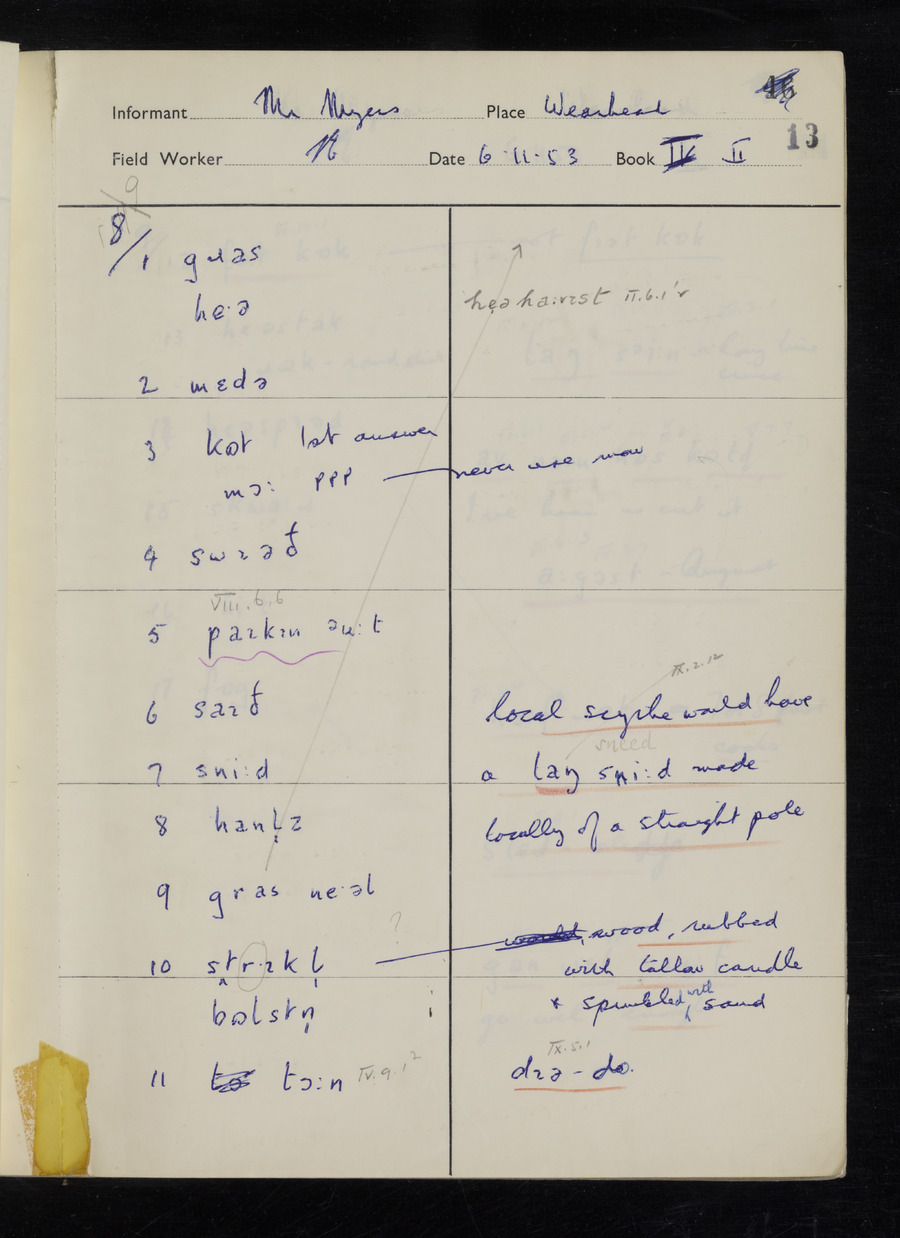 Informant Mr Myers Place Wearhead
13
Field Worker N Date 6·11·53 Book II
9
8/1 gɹas
he·ə heə ha:ɪvɪst II.6.1'r
2 mɛdə
3 kɷt 1st answer
mɔ: ppp — never use now
4 swɪəθ
VIII.6.6
5 paɪkɪn ɷu:t
IX.2.12
6 saɪð local scythe would have
sneed
7 sni:d a laŋ sni:d made
8 hanl̩z locally of a straight pole
9 gras ne·əl
? wood, rubbed
10 strɪkl̩ with tallow candle
bɷlstn̩ i + sprinkled with sand
IX.5.1
11 tɔ:n IV.9.1² dɪə - do.